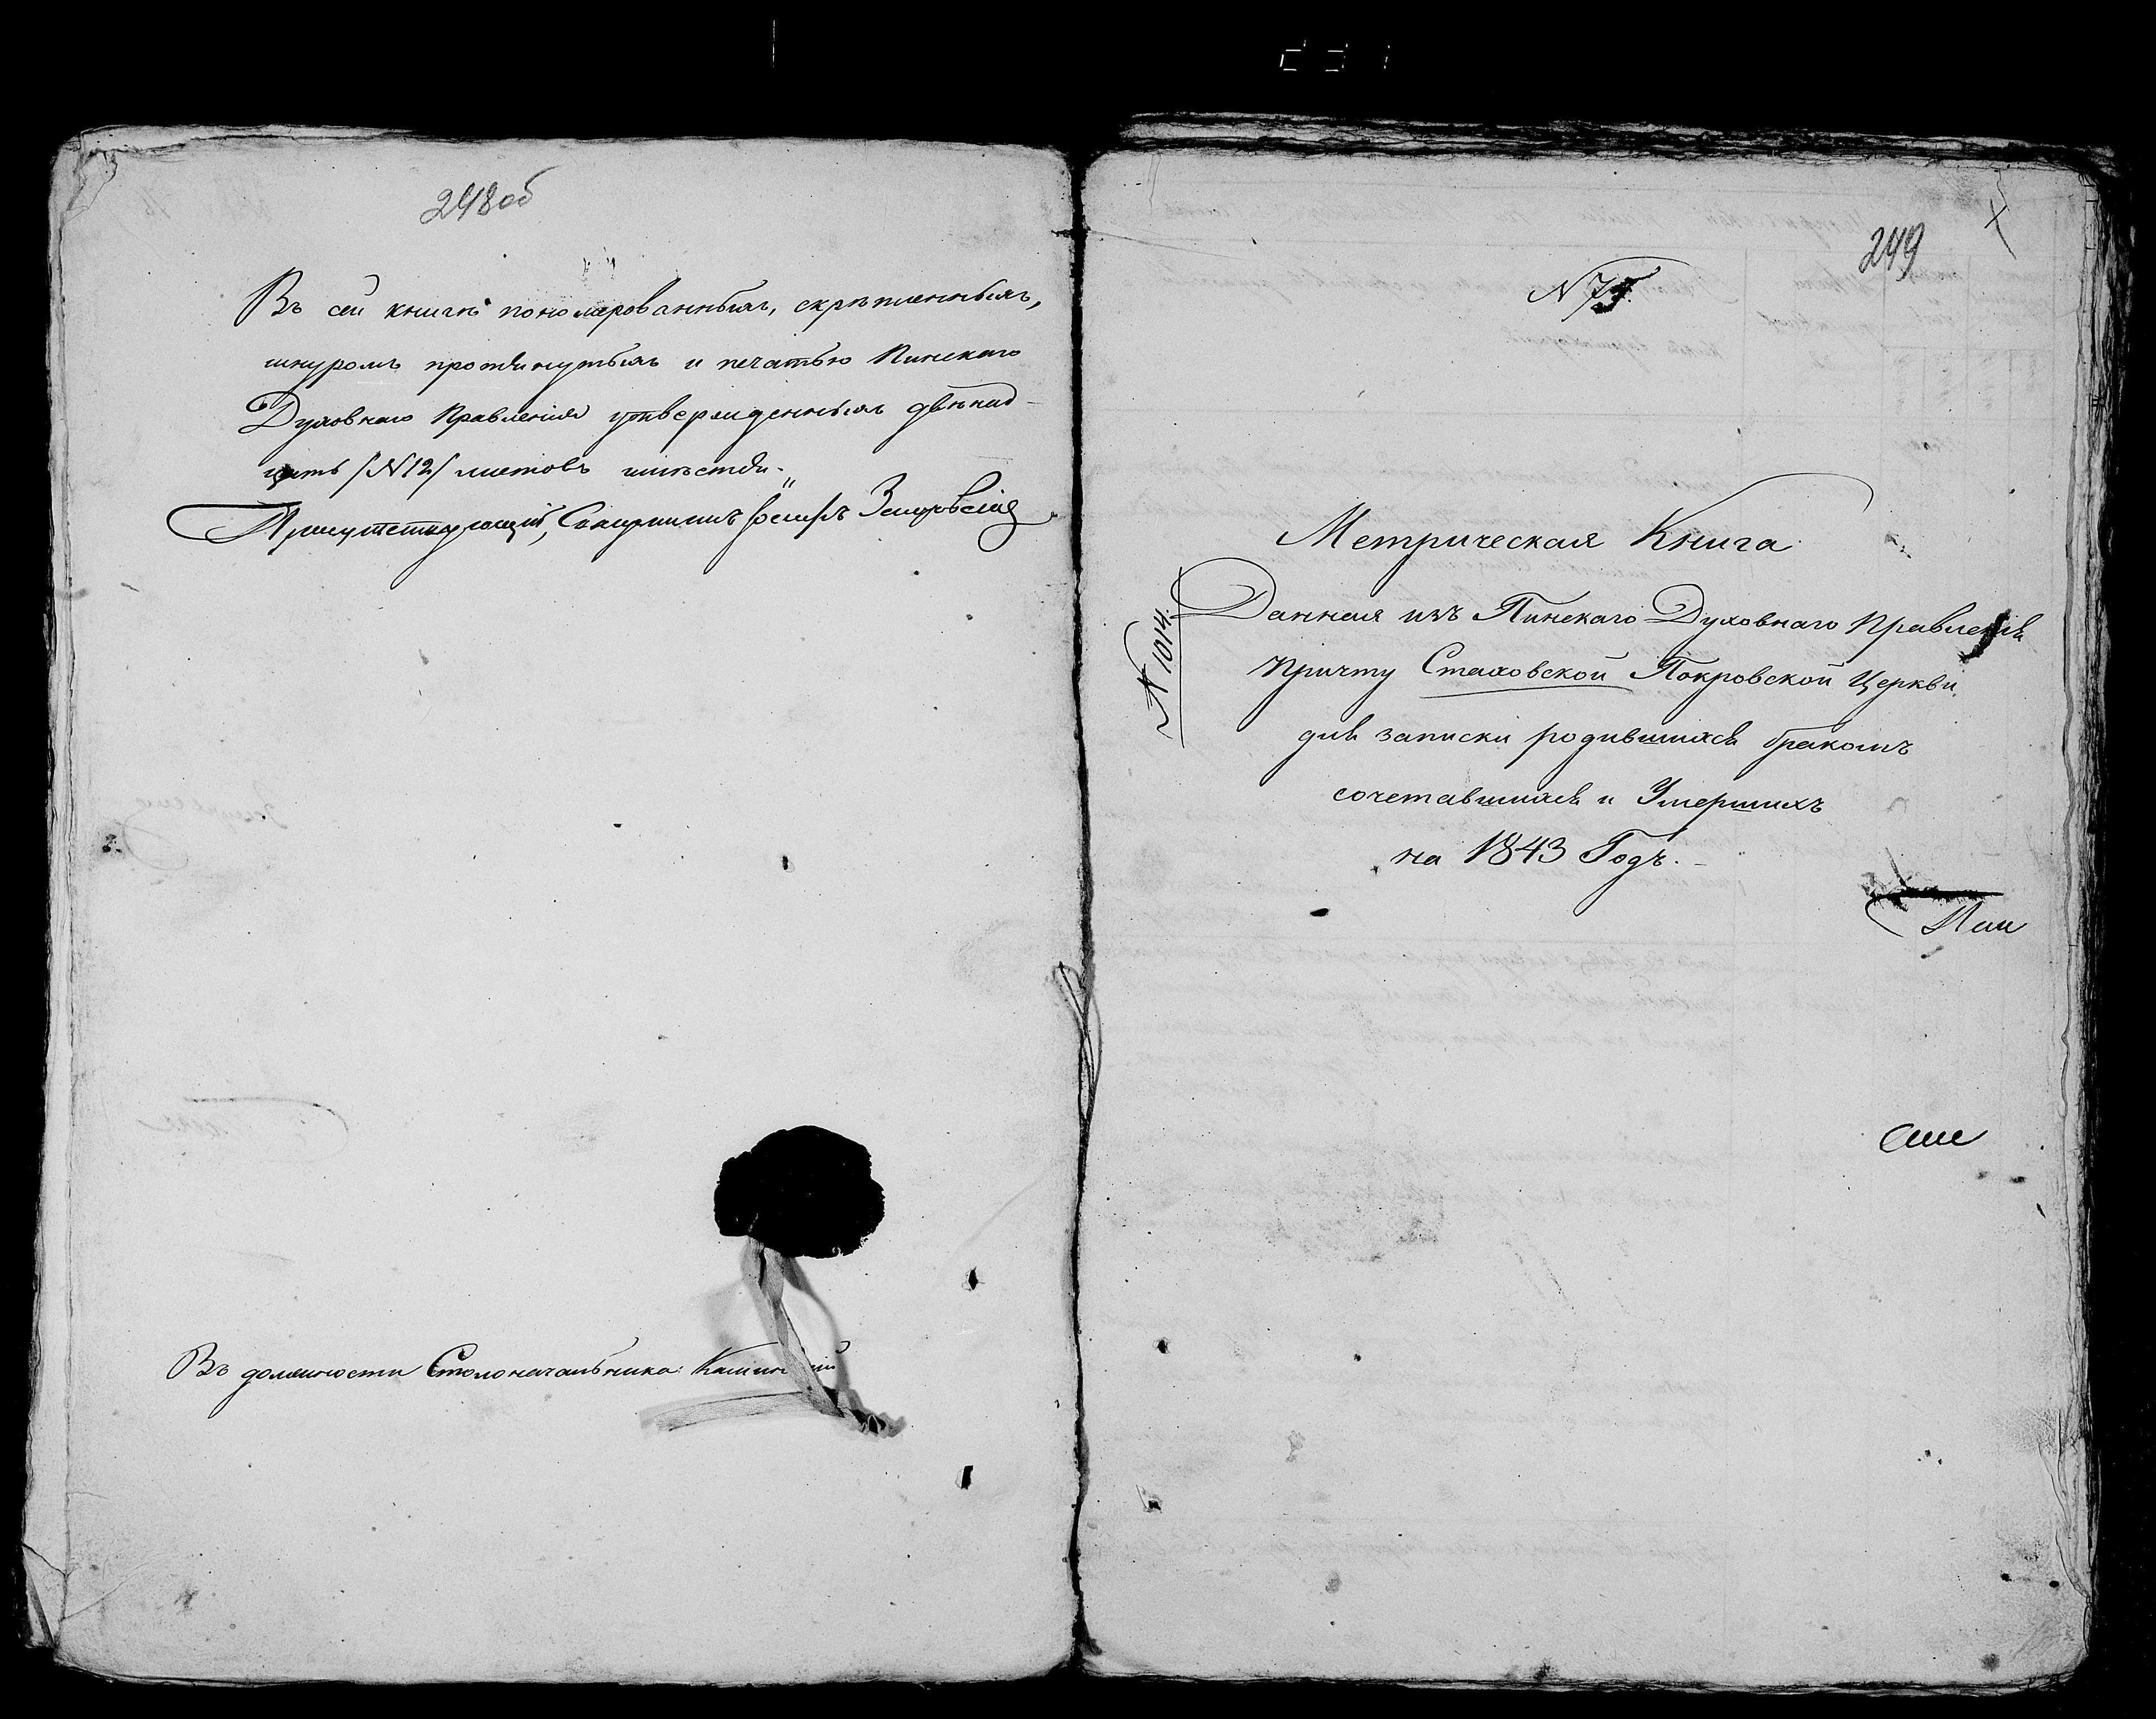 248 об
Въ сей книгѣ пономерованныхъ, скрѣпленныхъ,
шнуромъ протянутыхъ и печатью Пинскаго
Духовнаго Правленія утвержденныхъ двѣнад-
цать /N12/ листовъ имѣется.
Присутствующій, Священникъ Іосифъ
Въ должности Столоначальника
249
N 75.
Метрическая Книга
Данная изъ Пинскаго Духовнаго Правленія
N 1014.
Причту Стаховской Покровской Церкви
для записки родившихся бракомъ
сочетавшихся и Умершихъ
на 1843 Годъ.